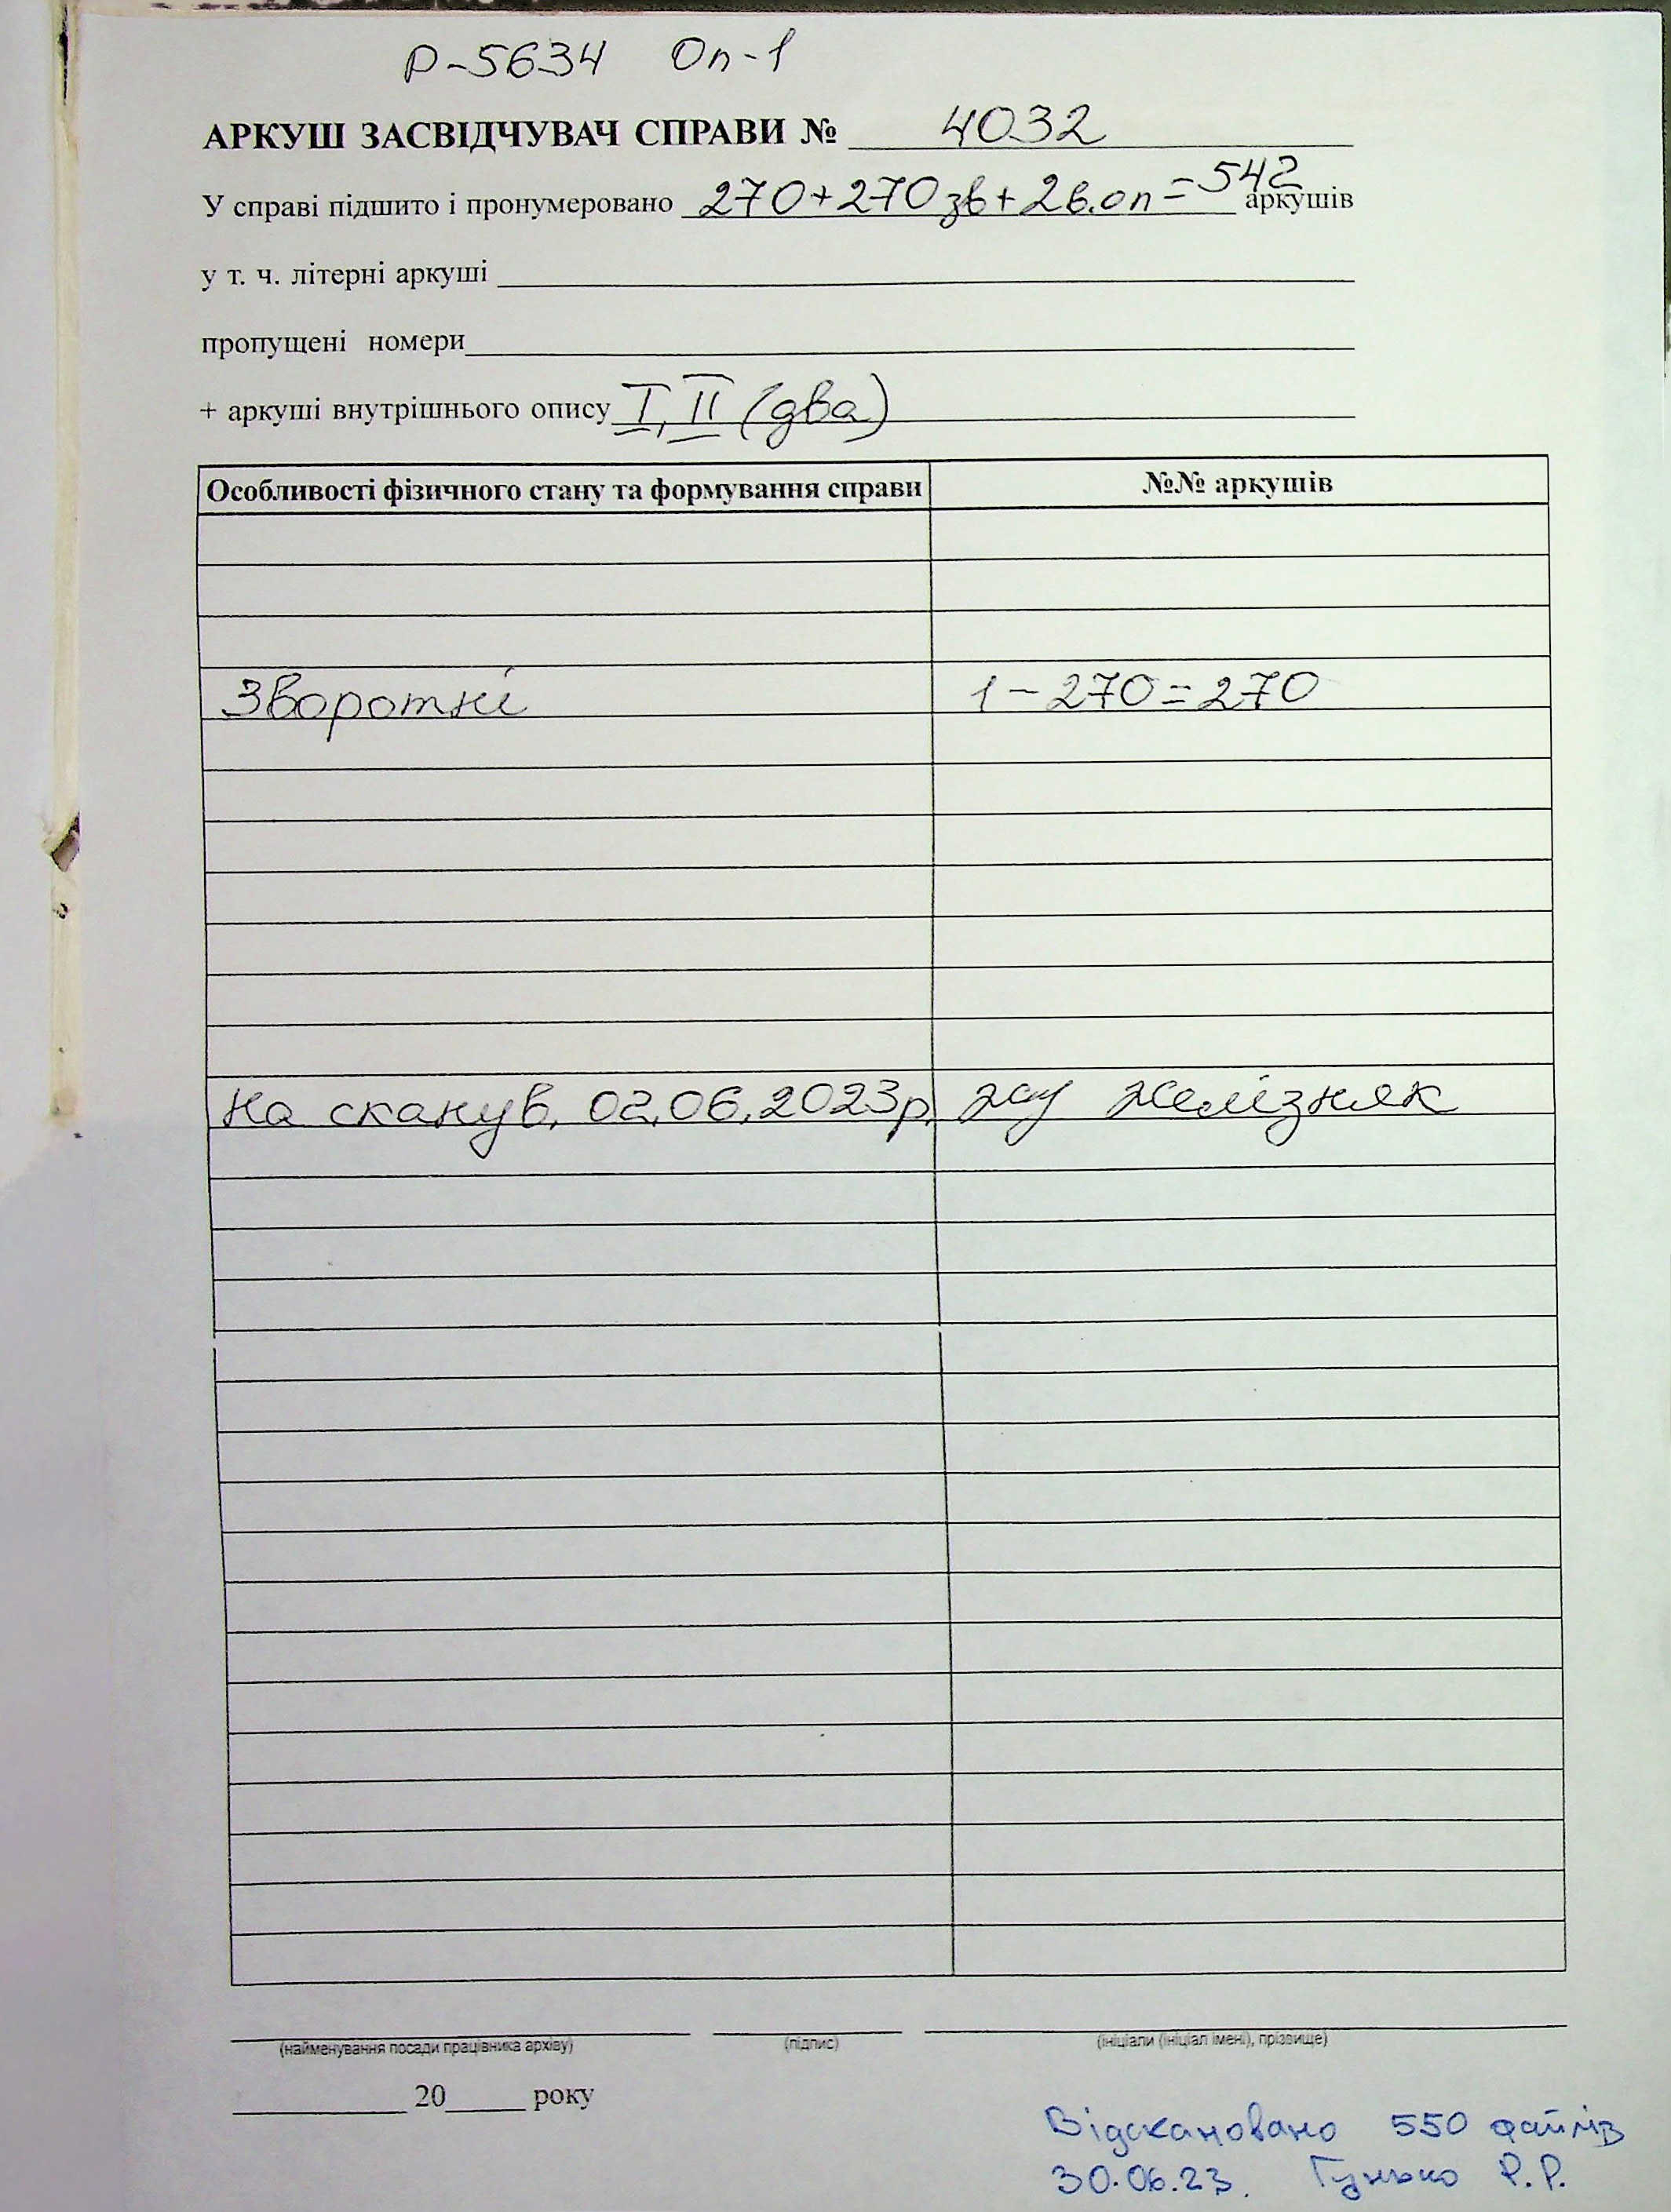 Р-5634 Оп-1
АРКУШ ЗАСВІДЧУВАЧ СПРАВИ № 4032
У справі підшито і пронумеровано 270+270зв+2в.оп=542 аркушів
у т. ч. літерні аркуші
пропущені номери
+ аркуші внутрішнього опису І, ІІ (два)
Особливості фізичного стану та формування справи №№ аркушів
Зворотні 1-270=270
На сканув. 02.06.2023р. Желізняк
(найменування посади працівника архіву) (підпис) (ініціали (ініціал імені), прізвище)
20 року
Відскановано 550 файлів
30.06.23. Гунько Р.Р.